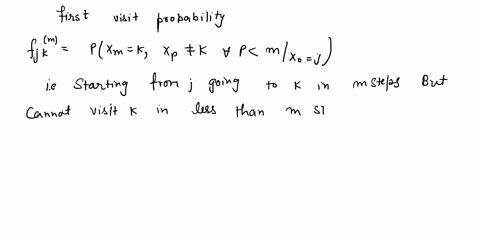 first visit probability
fjk^(m) = P(Xm = K, Xp ≠ K ∀ P < m / Xo = j)
i.e Starting from j going to K in m steps But
Cannot visit K in less than m st